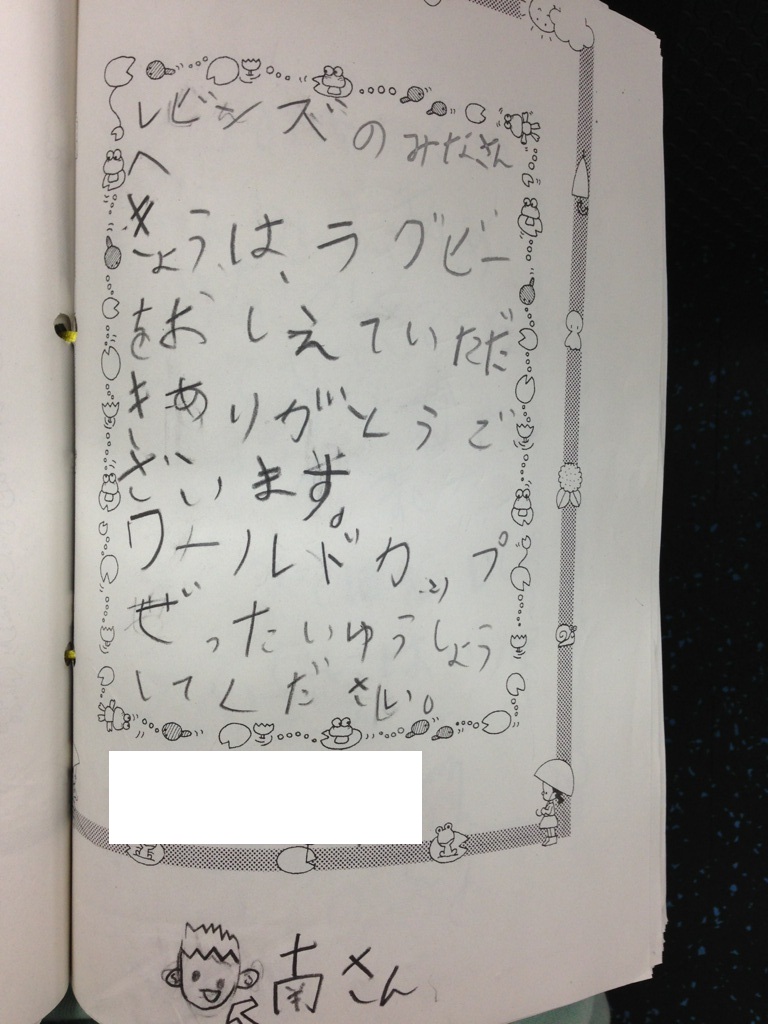 レビンズのみなさん
へ
きょうは、ラグビー
をおしえていただ
きありがとうご
ざいます。
ワールドカップ
ぜったいゆうしょう
してください。
南さん